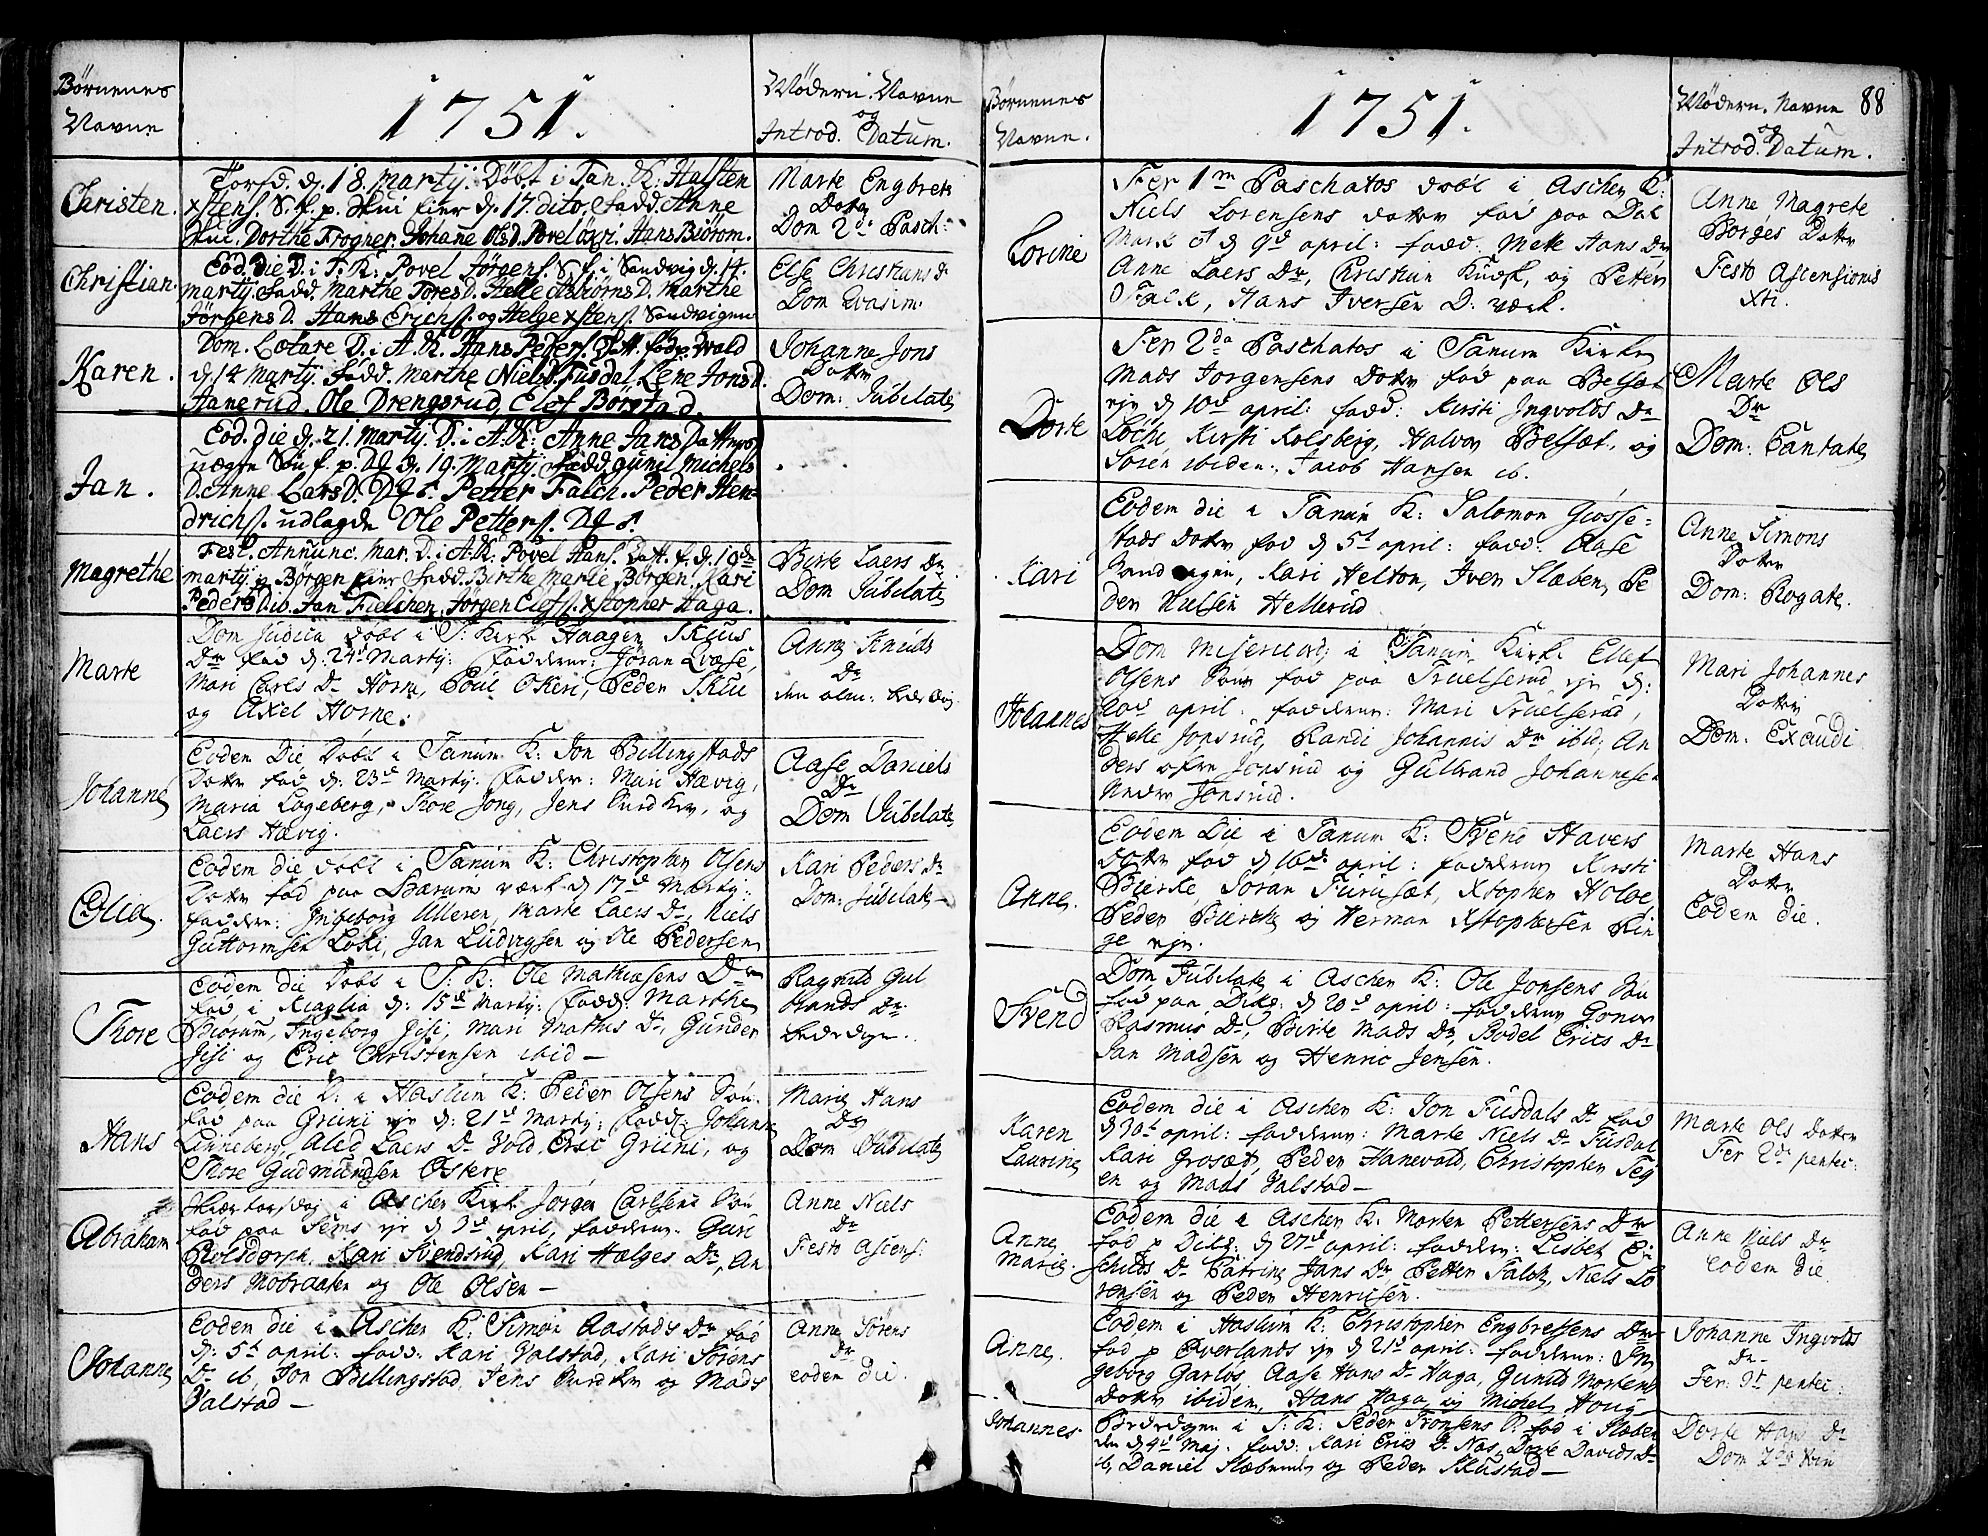 Børnenes
Navne
1751.
Mødern. Navne
og
Introd. Datum.
Christen.
Torsd. d. 18. Martij. Døbt i Tan. K: Halsten
Xstens. S. f. p. Skui Eier d. 17. dito. Fadd. Anne
Skui. Dorthe Frogner. Johane Ols D. Povel Hans Biørom.
Marte Engbrets
Dotter
Dom 2de Pasch:
Christian.
Eod. Die D. i T. K: Povel Jørgens. S. f. i Sandvig d. 14.
Martij. Fadd. Marthe Tores D. Helle Asbiørns D. Marthe
Jørgens D. Hans Erichs. og Helge Xstens. Sandvigen
Else Christians D.
Dom Quasim:
Karen.
Dom. Lætare D. i A. K. Hans Peders. D. f. p. Wold
d. 14 Martij. Fadd. Marthe Niels D. Fusdal, Lene Jons D.
Hanerud. Ole Drengsrud, Elef Borstad.
Johanne Jons
Dotter
Dom: Jubilate
Jan.
Eod. die d. 21. Martij. D. i A. K: Anne Jans D.
uægte Søn f. p. d. 19. Martij. Fadd. Gunil Michels
D. Anne Lars D. Petter Falch. Peder Hen-
drichs. udlagde Ole Petters.
Magrethe
Fest. Annunc. Mar. D. i A. K: Povel Hans. f. d. 19de
Martij p. Børgen Eier Fadd. Birthe Marie Børgen. Kari
Peders D. ib. Jan Fielchen, Jørgen Elefs. Xstopher Haga.
Birte Laers Dr
Dom Jubilate
Marte
Dom Judica døbt i T: Kirke Haagen Skuis
Dr fød d: 24d Martij: Fadderne: Jøran Qvæse,
Mari Carls Dr Horne, Poul Økeri, Peder Skui
og Axel Horne:
Anne Knuds
Dr
Johanne
Eodem Die Døbt i Tanum K: Jon Billingstads
Dotter fød d: 23d Martij: Fadder: Mari Hævig,
Maria Løgeberg, Thore Jong, Jens, og
Laers Hævig.
Aase Daniels
Dr
Dom Jubilate
Olia.
Eodem die døbt i Tanum K: Christopher Olsens
Dotter fød paa Bærum værk d 17d Marty:
Fadder: Ingeborg Ulleren, Marte Laers Dr, Niels
Guttormsen Løski, Jan Ludvigsen og Ole Pedersen
Kari Peders Dr
Dom: Jubilate —
Thore
Eodem die Døbt i T: K: Ole Mathiæsens Dr
fød i d: 15d Marty: Fadd: Marthe
Biorum, Ingeborg Jisi, Mari Mathis Dr, Gunder
Jisi og Eric Christensen ibid —
Ragnild Gul
brands Dr
Hans
Eodem die D: i Haslum K: Peder Olsens Søn
fød paa Grini eje d: 21d Marty: Fadd: Johanne
Linneberg, Aled Laers Dr Vold, Eric Grini, og
Thore Gudmundsen Østere
Marie Hans
Dr
Dom Jubilate
Abraham
Skiærtorsdag i Ascher Kirke Jørgen Carlsens Søn
fød paa Sems eje d 3d april, Fadderne: Guri
Rolsdorph, Kari Svendsrud, Kari Hælges Dr, An
ders Mobraaten og Ole Olsen —
Anne Niels
Dr
Festo Ascens:
Johanne
Eodem die i Ascher K: Simon Aastads Dr fød
d: 5t april: fadd: Kari Valstad, Kari Sørens
Dr ib, Jon Billingstad, Jens og Mads
Valstad —
Anne Sørens
Dr
eodem die.
Børnenes
Navne.
1751.
Mødern. Navne 88
og
Introd. Datum.
Lorine
Fer 1m Paschatos døbt i Ascher K:
Niels Lorensens dotter fød paa Dat
Mark d 9d april: fadd. Mette Hans Dr
Anne Laers Dr, Christian Knuds, og Petter
Falk, Hans Iversen D: værk.
Anne Magrete
Børges Dotter
Festo Ascensionis
Xti.
Dorte
Fer 2da Paschatos i Tanum Kirke
Mads Jorgensens Dotter fød paa Belset
eje d 10d april: fadd: Kirsti Ingvolds Dr
Løchi Kirsti Kolsberg, Halvor Belset, og
Sören ibidem, Jacob Hansen ib.
Marte Ols
Dr
Dom: Cantate
Kari
Eodem die i Tanum K: Salomon Giosse-
stads dotter fød d 5t april: fadd: Aase
Sandvigen, Kari Helton, Iver Slæben, Pe
der Nielsen Hellerud
Anne Simons
Dotter
Dom: Rogate.
Johannes
Dom Misericord: i Tanum Kirke Elef
Olsens Søn fød paa Truelserud eje d:
april: fadderne: Mari Truelserud,
Mette Jonsrud, Randi Johannis Dr ibid; An
ders øfre Jonsrud og Gulbrand Johannesen
Nedre Jonsrud.
Mari Johannes
Dotter
Dom: Exaudi
Anne.
Eodem Die i Tanum K: Svend Stavers
dotter fød d 16d april: fadderne Kirsti
Bierke, Joran Furuset, Xstopher Holve,
Peder Bierke og Herman Xstophersen Rin
ge eje.
Marte Hans
Dotter
Eodem die.
Svend
Dom Jubilate i Ascher K: Ole Jonsens Søn
fød paa Dikg: d 20d april: fadderne Goner
Rasmus Dr, Birte Mads Dr, Bodel Erics Dr
Jan Madsen og Henric Jensen.
Karen
Laurine
Eodem die i Ascher K: Jon Fusdals Dr fød
d 30t april: fadderne: Marte Niels Dr Fusdal
Kari Groset, Peder Hanevold, Christopher Teg
en og Mads Valstad —
Marte Ols dotter
Fer 2da pentec:
Anne
Marie.
Eodem die i Ascher K: Morten Pettersens Dr
fød p Dikg: d 27d april: fadderne: Lisbet Ei
schilds Dr Catrine Jans Dr Petter Falck, Niels Lo
rensen og Peder Henricsen.
Anne Niels Dr
eodem die
Anne.
Eodem i Haslum K: Christopher Engbretsens Dr
fød p Øverlands eje d 21d april: fadderne: In
geborg Garløs, Aase Hans Dr Haga, Gunild Mortens
dotter ibidem, Hans Haga og Michel Houg
Johanne Ingvolds
Dr
Fer: 3t pentec:
Johannes
Bededagen i T: K: Peder Tronsens S: fød i Slæben
den d 4d Maj. fadd: Kari Erics Dr Nas, Dorte Davids Dr
ib, Daniel Slæbende og Peder Skustad —
Dorte Hans Dr
Dom 2da